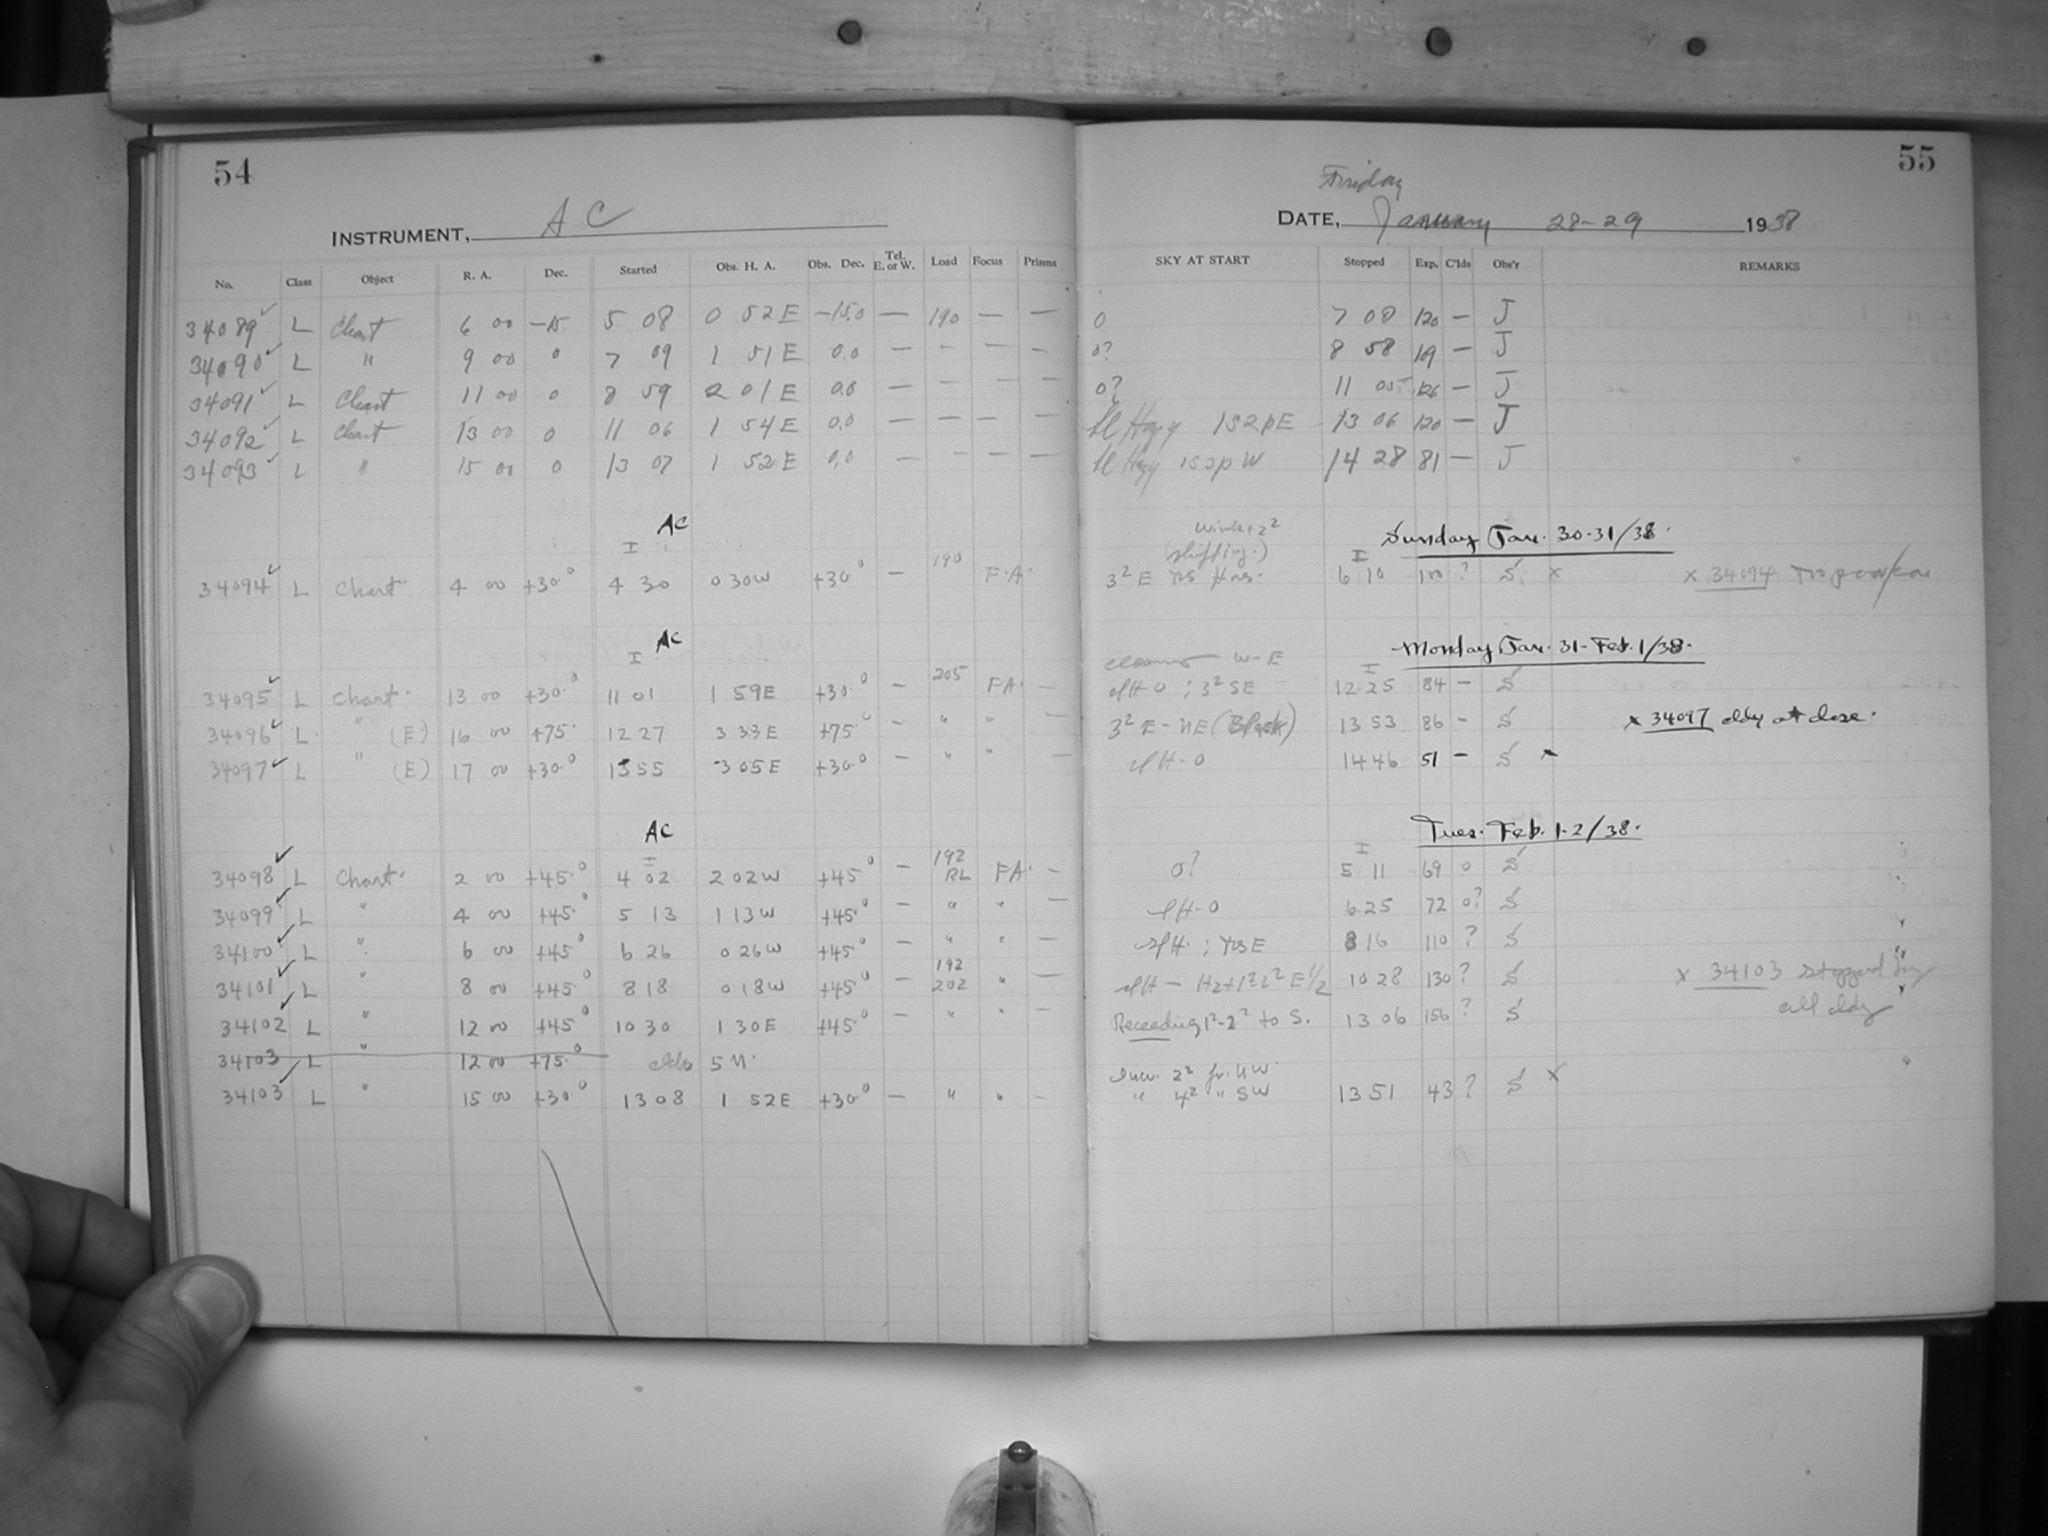 54
INSTRUMENT, A C
No. Class Object R. A. Dec. Started Obs. H. A. Obs. Dec. Tel. E. or W. Load Focus Prisms
34089 ✓ L Chart 6 00 -15 5 08 0 52 E -15.0 — 190 — —
34090 ✓ L " 9 00 0 7 09 1 51 E 0.0 — — — —
34091 ✓ L Chart 11 00 0 8 59 2 01 E 0.0 — — — —
34092 ✓ L Chart 13 00 0 11 06 1 54 E 0.0 — — — —
34093 ✓ L " 15 00 0 13 07 1 52 E 0.0 — — — —
AC
I
34094 ✓ L Chart. 4 00 +30.0 4 30 0 30 W +30.0 — 190 F.A.
AC
I
34095 ✓ L Chart. 13 00 +30.0 11 01 1 59 E +30.0 — 205 FA. —
34096 ✓ L. " (E) 16 00 +75.0 12 27 3 33 E +75.0 — " " —
34097 ✓ L " (E) 17 00 +30.0 13 55 3 05 E +30.0 — " " —
AC
I
34098 ✓ L Chart. 2 00 +45.0 4 02 2 02 W +45.0 — 192 RL FA. —
34099 ✓ L " 4 00 +45.0 5 13 1 13 W +45.0 — " " —
34100 ✓ L " 6 00 +45.0 6 26 0 26 W +45.0 — " " —
34101 ✓ L " 8 00 +45.0 8 18 0 18 W +45.0 — 192 202 " —
34102 ✓ L " 12 00 +45.0 10 30 1 30 E +45.0 — " " —
34103 L " 12 00 +75.0 clds 5 N.
34103 ✓ L " 15 00 +30.0 13 08 1 52 E +30.0 — " " —
55
Friday
DATE, January 28-29 1938
SKY AT START Stopped Exp. C'lds Obs'r REMARKS
0 7 08 120 — J
0? 8 58 — J
0? 11 05 126 — J
sl Hazy 1s2pE 13 06 120 — J
sl Hzy 1s2p W 14 28 81 — J
Sunday Jan. 30-31/38.
(shifting.)
I
3² E Hor. 6 10 100 ? S. x x 34094
Monday Jan. 31-Feb. 1/38.
W-E
I
slH-0 ; 3² SE 12 25 84 — S
3² E-NE (Black) 13 53 86 — S x 34097 cldy at close.
slH-0 14 46 51 — S x
Tues. Feb. 1-2/38.
I
0? 5 11 69 0 S
slH-0 6 25 72 0? S
slH. ; E 8 16 110 ? S
slH — Hz+1²2² E ½ 10 28 130 ? S x 34103 stopped by
Receeding 1²-2² to S. 13 06 156 ? S all cldy
2² fr. NW.
" 4² " SW 13 51 43 ? S x